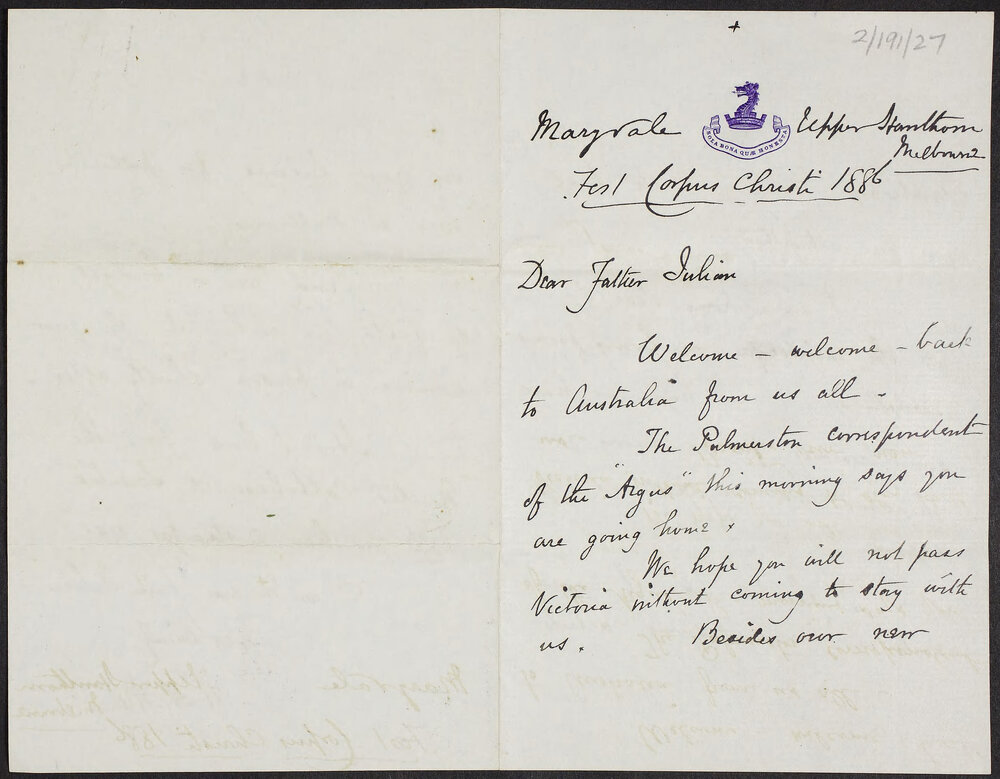 +
2/191/27
Maryvale
SOLA BONA QUÆ HONESTA
Upper Hawthorn
Melbourne
Fest Corpus Christi 1886
Dear Father Julian
Welcome – welcome – back
to Australia from us all.
The Palmerston correspondent
of the "Argus" this morning says you
are going home.
We hope you will not pass
Victoria without coming to stay with
us. Besides our new